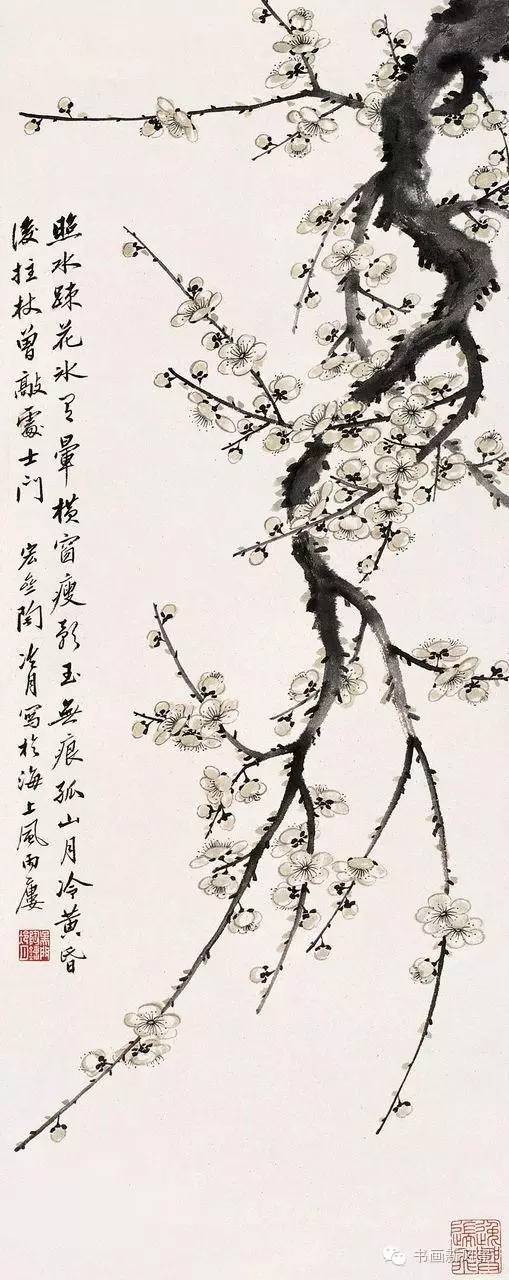 照水疎花冰有暈橫窗瘦影玉無痕孤山月冷黃昏
後拄杖曾敲處士門 宏亝陶冷月寫於海上風雨廔
书画新